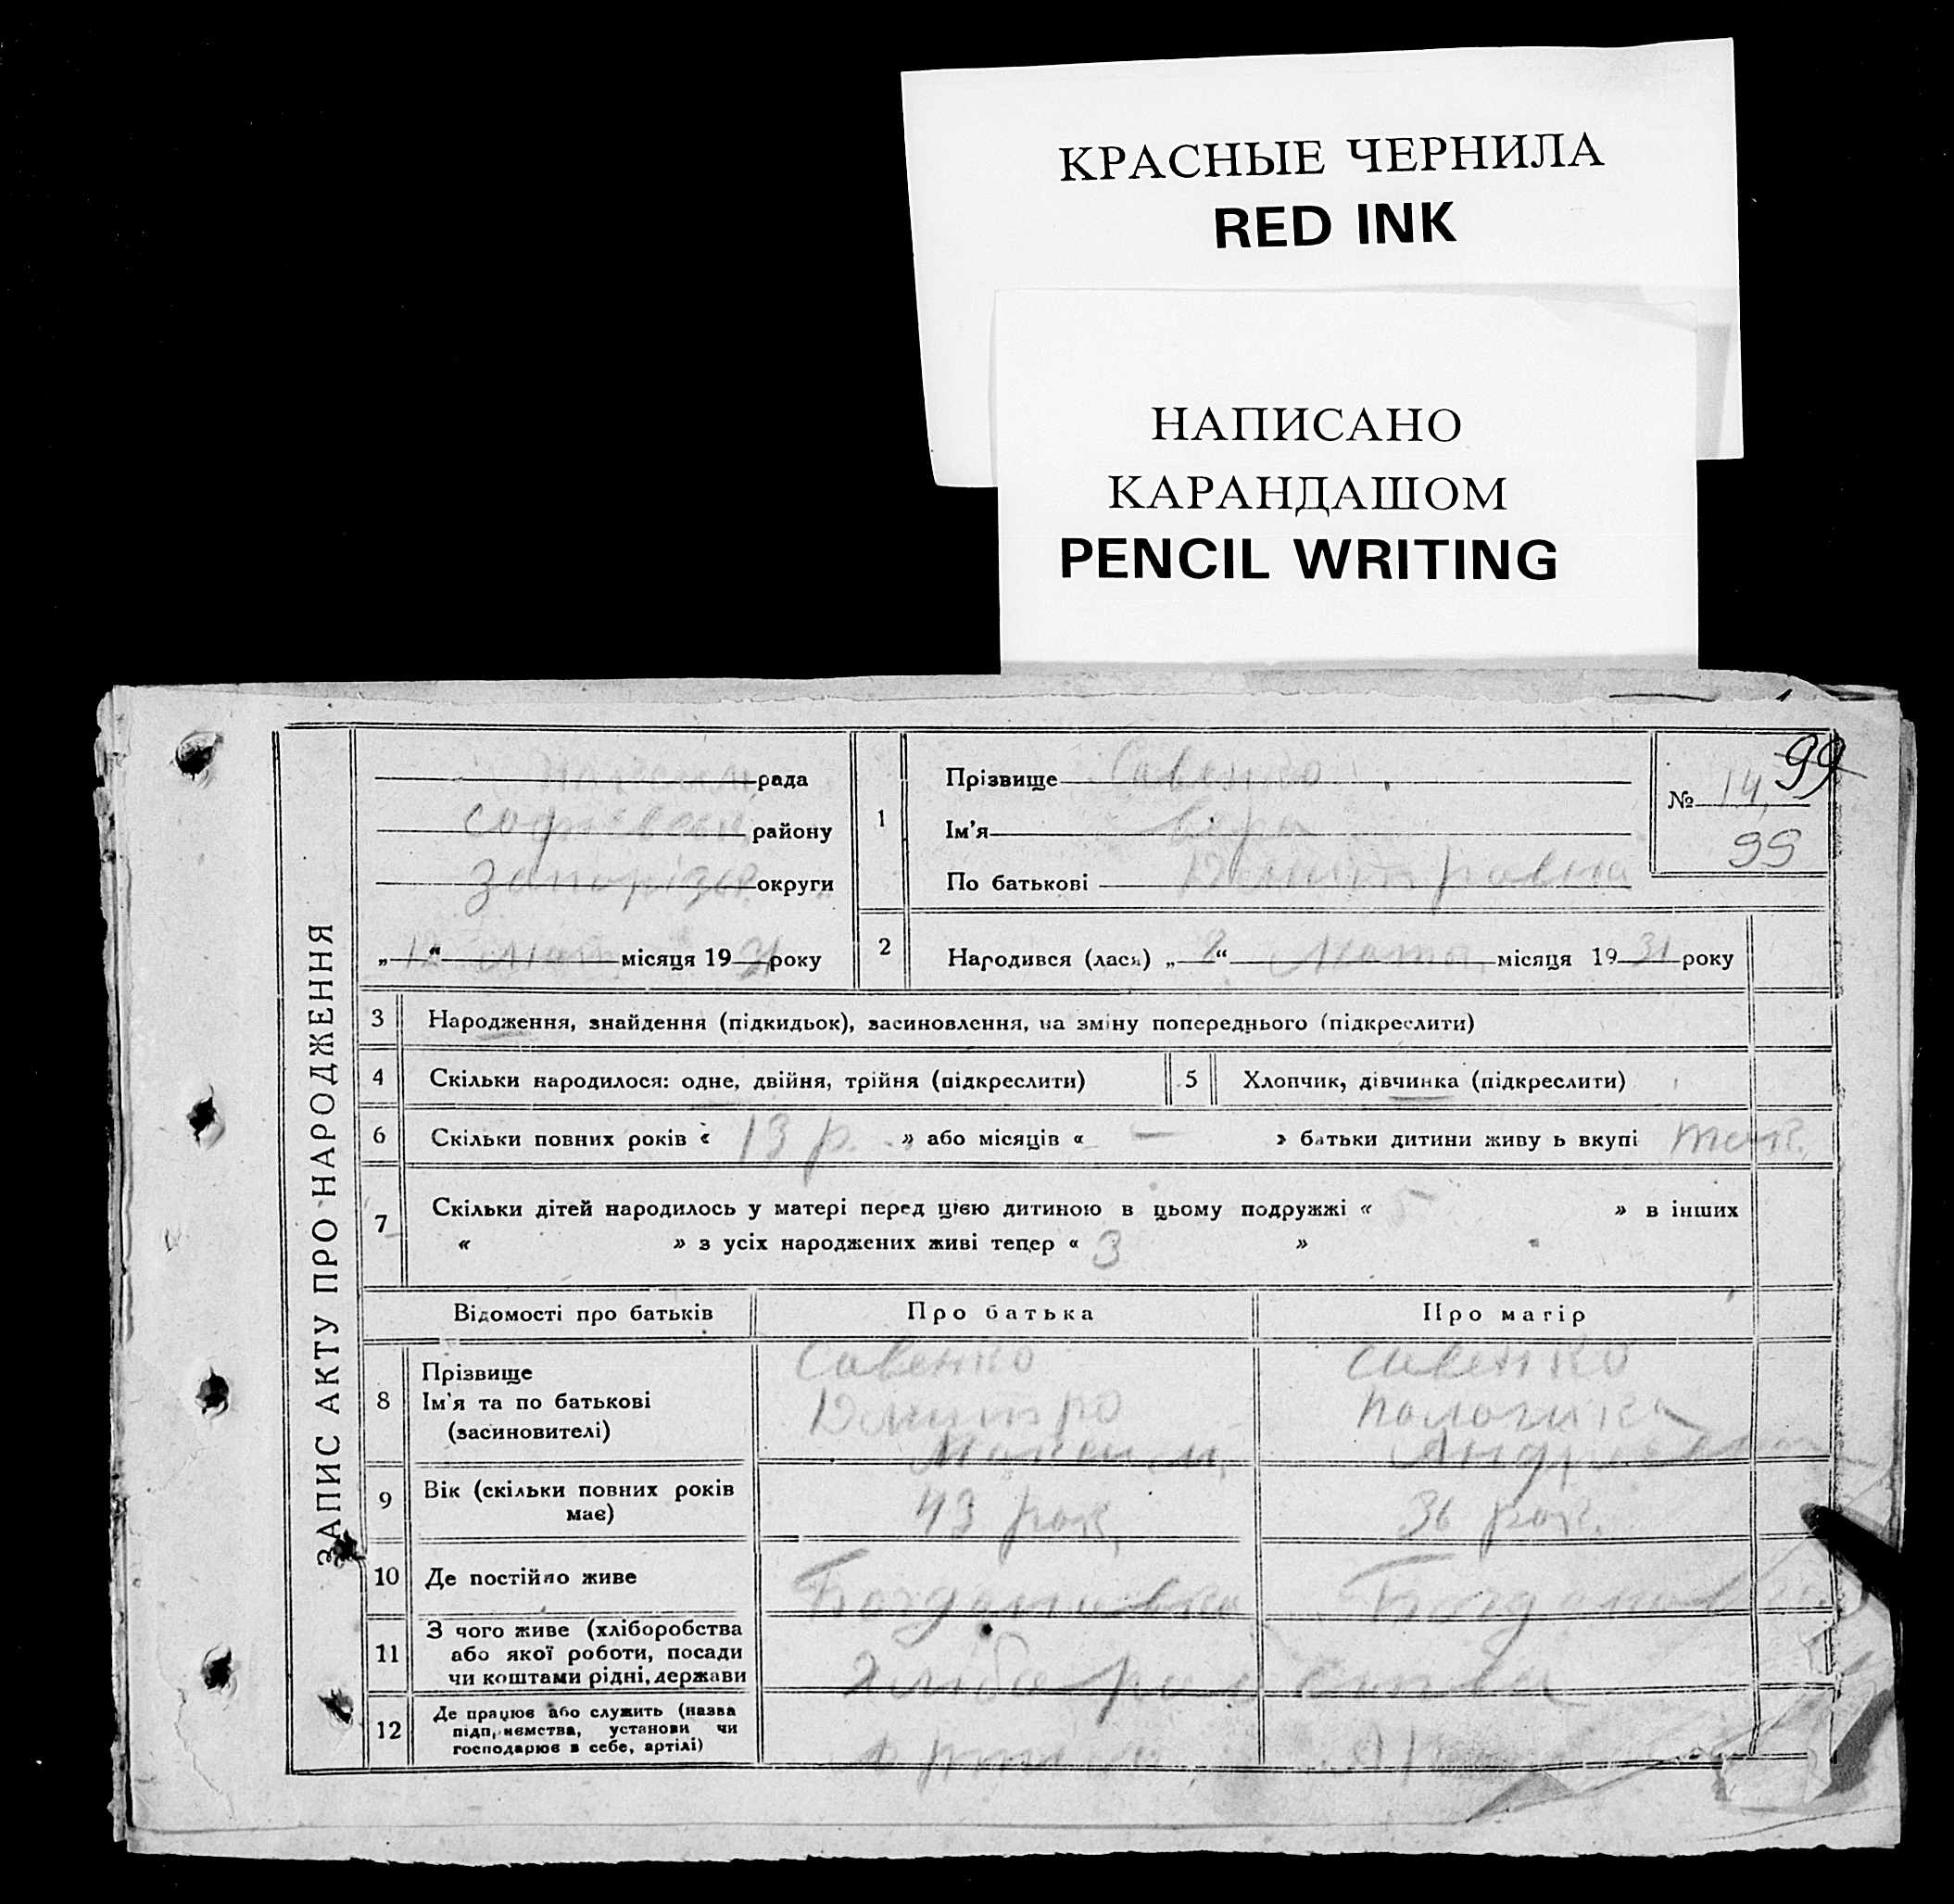 КРАСНЫЕ ЧЕРНИЛА
RED INK
НАПИСАНО
КАРАНДАШОМ
PENCIL WRITING
ЗАПИС АКТУ ПРО НАРОДЖЕННЯ
рада
району
Запорізьк. округи
„12“ місяця 1931 року
1
Прізвище Савенко
Ім'я Вера
По батькові Дмитровна
99
№ 14
99
2 Народився (лася) „8“ місяця 1931 року
3 Народження, знайдення (підкидьок), засиновлення, на зміну попереднього (підкреслити)
4 Скільки народилося: одне, двійня, трійня (підкреслити) 5 Хлопчик, дівчинка (підкреслити)
6 Скільки повних років « 13 р. » або місяців « — » батьки дитини живуть вкупі
7 Скільки дітей народилось у матері перед цією дитиною в цьому подружжі « 5 » в інших
« » з усіх народжених живі тепер « 3 »
Відомості про батьків Про батька Про матір
8 Прізвище Савенко Савенко
Ім'я та по батькові Дмитро
(засиновителі)
9 Вік (скільки повних років має) 43 рок. 36 рок.
10 Де постійно живе Богдановка Богдановка
11 З чого живе (хліборобства
або якої роботи, посади
чи коштами рідні, держави
12 Де працює або служить (назва
підприємства, установи чи
господарює в себе, артілі)